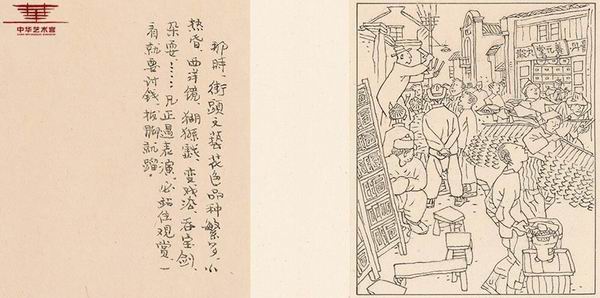 中华艺术宫
那時，街頭文藝花色品种繁多，小
热昏、西洋镜、猢猻戲、变戏法、吞宝剑、
杂耍……凡正遇表演，必站住观赏，一
看就要讨錢，拔脚就蹓。